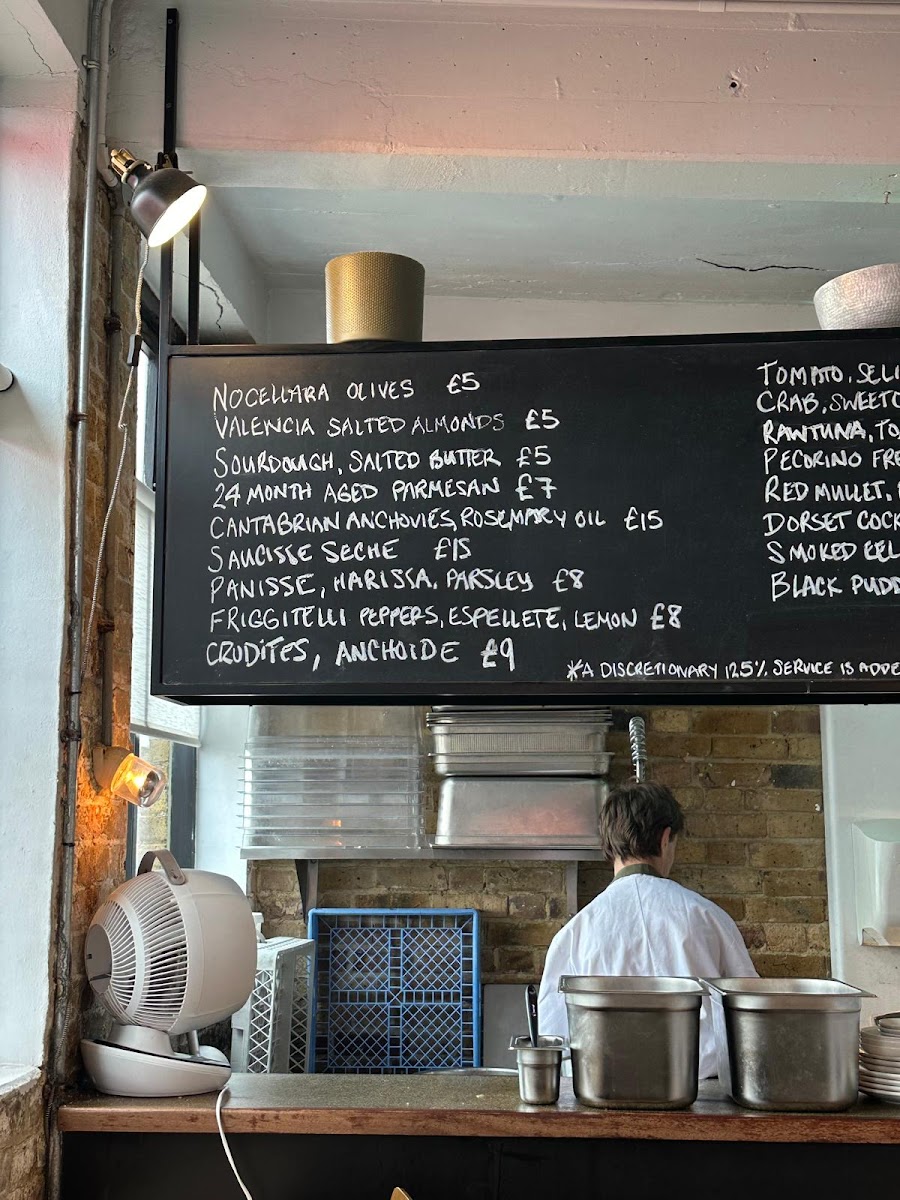 NOCELLARA OLIVES £5
VALENCIA SALTED ALMONDS £5
SOURDOUGH, SALTED BUTTER £5
24 MONTH AGED PARMESAN £7
CANTABRIAN ANCHOVIES, ROSEMARY OIL £15
SAUCISSE SECHE £15
PANISSE, HARISSA, PARSLEY £8
FRIGGITELLI PEPPERS, ESPELLETE, LEMON £8
CRUDITÉS, ANCHOIDE £9
TOMATO, SELI
CRAB, SWEETC
RAW TUNA, TO
PECORINO FRE
RED MULLET,
DORSET COCK
SMOKED EEL
BLACK PUDD
*A DISCRETIONARY 12.5% SERVICE IS ADDE